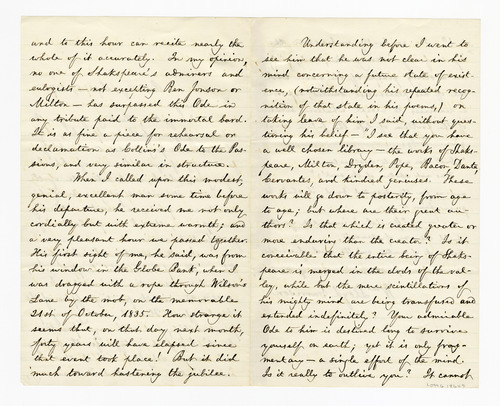 and to this hour can recite nearly the
whole of it accurately. In my opinion,
no one of Shakspeare's admirers and
eulogists — not excepting Ben Jonson or
Milton — has surpassed this Ode in
any tribute paid to the immortal bard.
It is as fine a piece for rehearsal or
declamation as Collins's Ode to the Pas-
sions, and very similar in structure.
When I called upon this modest,
genial, excellent man some time before
his departure, he received me not only
cordially but with extreme warmth; and
a very pleasant hour we passed together.
His first sight of me, he said, was from
his window in the Globe Bank, when I
was dragged with a rope through Wilson's
Lane by the mob, on the memorable
21st of October, 1835. How strange it
seems that, on that day next month,
forty years will have elapsed since
that event took place! But it did
much toward hastening the jubilee.
Understanding before I went to
see him that he was not clear in his
mind concerning a future state of exist-
ence, (notwithstanding his repeated recog-
nition of that state in his poems,) on
taking leave of him I said, without ques-
tioning his belief — "I see that you have
a well chosen library — the works of Shaks-
peare, Milton, Dryden, Pope, Bacon, Dante,
Cervantes, and kindred geniuses. These
works will go down to posterity, from age
to age; but where are their great au-
thors? Is that which is created greater or
more enduring than the creator? Is it
conceivable that the entire being of Shaks-
peare is merged in the clods of the val-
ley, while but the mere scintillations of
his mighty mind are being transfused and
extended indefinitely? Your admirable
Ode to him is destined long to survive
yourself on earth; yet it is only frag-
mentary — a single effort of the mind.
Is it really to outlive you? It cannot